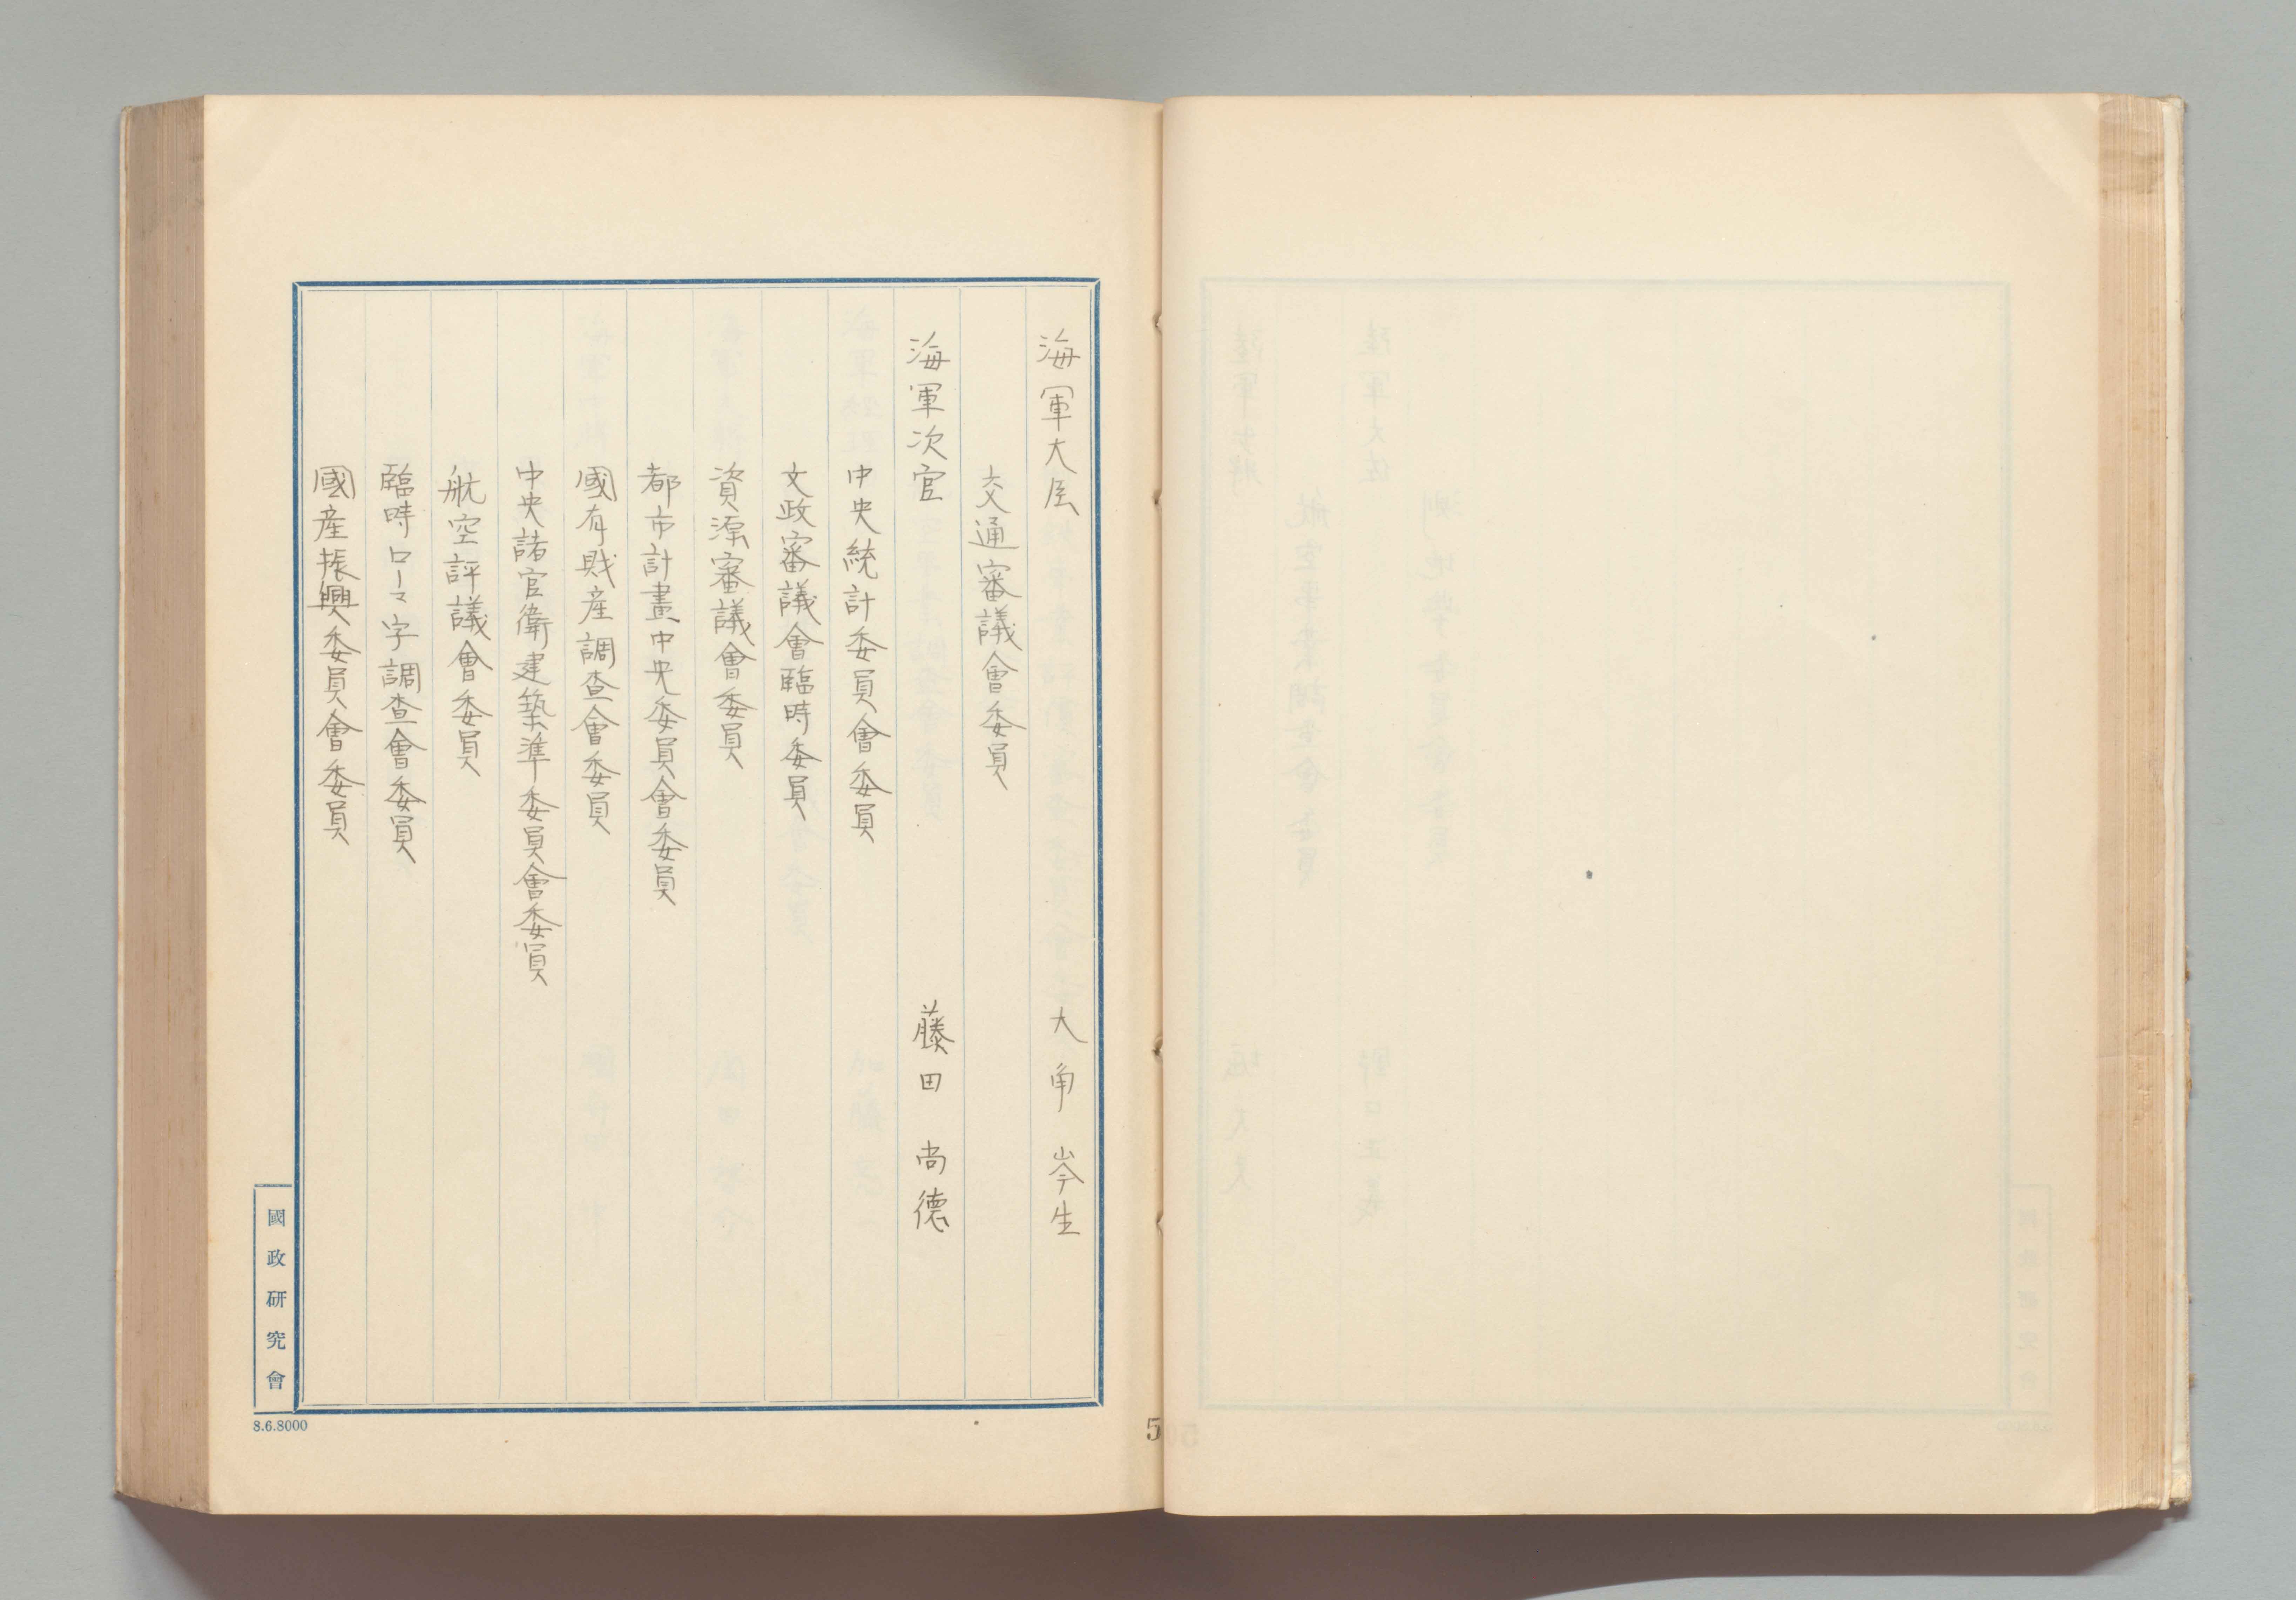 海軍大臣　大角　岑生
交通審議會委員
海軍次官　藤田　尚德
中央統計委員會委員
文政審議會臨時委員
資源審議會委員
都市計畫中央委員會委員
國有財産調查會委員
中央諸官衙建築準備委員會委員
航空評議會委員
臨時ローマ字調查會委員
國産振興委員會委員
國政研究會
8.6.8000
5